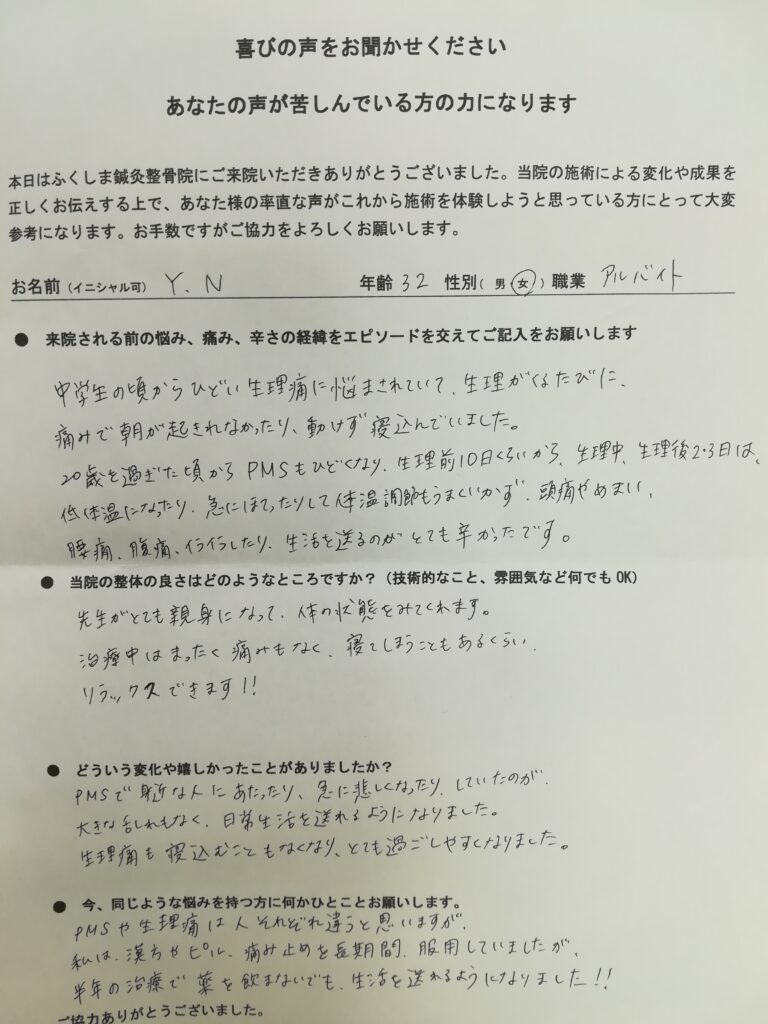 喜びの声をお聞かせください
あなたの声が苦しんでいる方の力になります
本日はふくしま鍼灸整骨院にご来院いただきありがとうございました。当院の施術による変化や成果を
正しくお伝えする上で、あなた様の率直な声がこれから施術を体験しようと思っている方にとって大変
参考になります。お手数ですがご協力をよろしくお願いします。
お名前(イニシャル可) Y.N 年齢 32 性別( 男 女 ) 職業 アルバイト
● 来院される前の悩み、痛み、辛さの経緯をエピソードを交えてご記入をお願いします
中学生の頃からひどい生理痛に悩まされていて、生理がくるたびに、
痛みで朝が起きれなかったり、動けず寝込んでいました。
20歳を過ぎた頃からPMSもひどくなり、生理前10日くらいから、生理中、生理後2・3日は、
低体温になったり、急にほてったりして体温調節もうまくいかず、頭痛やめまい、
腰痛、腹痛、イライラしたり、生活を送るのがとても辛かったです。
● 当院の整体の良さはどのようなところですか?(技術的なこと、雰囲気など何でもOK)
先生がとても親身になって、体の状態をみてくれます。
治療中はまったく痛みもなく、寝てしまうこともあるくらい、
リラックスできます!!
● どういう変化や嬉しかったことがありましたか?
PMSで身近な人にあたったり、急に悲しくなったり、していたのが、
大きな乱れもなく、日常生活を送れるようになりました。
生理痛も寝込むこともなくなり、とても過ごしやすくなりました。
● 今、同じような悩みを持つ方に何かひとことお願いします。
PMSや生理痛は人それぞれ違うと思いますが、
私は、漢方やピル、痛み止めを長期間、服用していましたが、
半年の治療で薬を飲まないでも、生活を送れるようになりました!!
ご協力ありがとうございました。